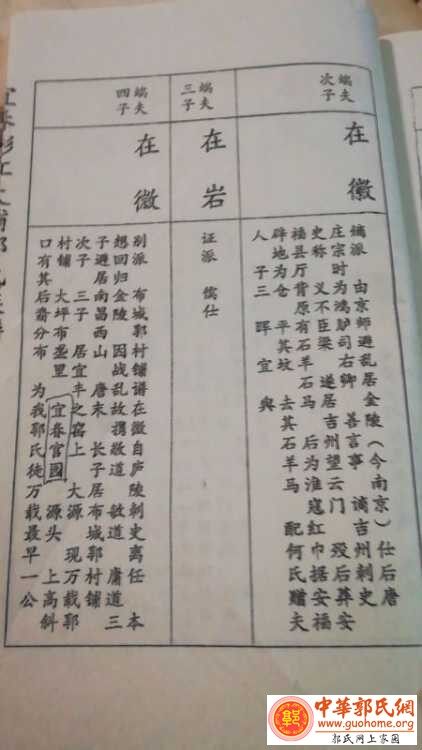 端夫
次子
在徽
派 由京师避乱居金陵(今南京) 仕后唐
庄宗时为鸿胪司右卿 善言事 谪吉州刺史
史称 义不臣梁 遂居吉州望云门 殁后葬安
福县厅背原有石羊石马 后为淮寇红巾据安福
辟地为仓 平其坟 去其石羊马 配何氏赠夫
人 子三 晖 宜 舆
端夫
三子
在岩
证派 儒仕
端夫
四子
在微
别派 布城郭村铺谱在微自庐陵刺史离任 本
想回归金陵 因战乱故携敬道 敏道 庸道三
子避居南昌西山 唐末 长子居布城郭村铺
次子 三子居宜丰之窑上 大源 现万载郭
村铺 大坪布垄里 宜春官园 源头 上高斜
口有其后裔分布 为我郭氏徙万载最早一公
中華郭氏網
www.guohome.com
郭氏网上家园